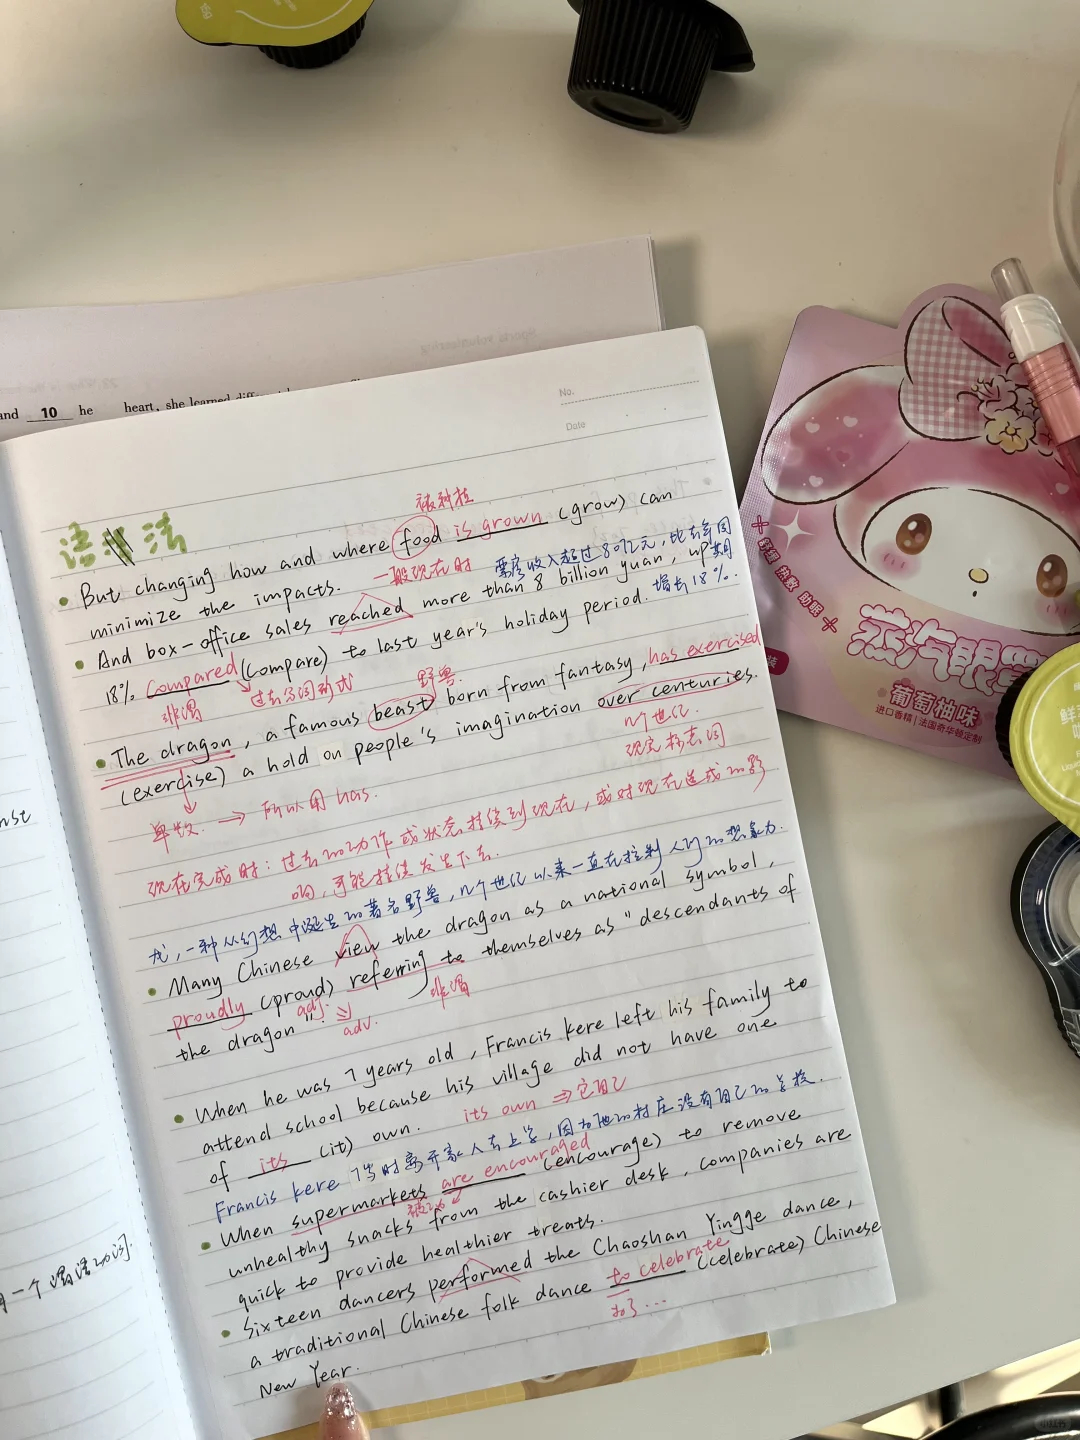 and 10 he heart, she learned
No.
Date
语法
被种植
But changing how and where food is grown (grow) can
minimize the impacts. 一般现在时
票房收入超过80亿元,比去年同期
增长18%.
And box-office sales reached more than 8 billion yuan, up
18% compared (compare) to last year's holiday period.
非谓 过去分词形式 野兽
The dragon, a famous beast born from fantasy, has exercised
(exercise) a hold on people's imagination over centuries.
几个世纪
现完标志词
单数. → 所以用 has.
现在完成时: 过去的动作或状态持续到现在, 或对现在造成的影
响, 可能持续发生下去.
龙, 一种从幻想中诞生的著名野兽, 几个世纪以来一直在控制人们的想象力.
Many Chinese view the dragon as a national symbol,
proudly (proud) referring to themselves as "descendants of
adj. ⇒ adv. 非谓
the dragon".
When he was 7 years old, Francis Kere left his family to
attend school because his village did not have one
of its (it) own. its own ⇒ 它自己
Francis Kere 7岁时离开家人去上学, 因为他的村庄没有自己的学校.
When supermarkets are encouraged (encourage) to remove
被动
unhealthy snacks from the cashier desk, companies are
quick to provide healthier treats.
Sixteen dancers performed the Chaoshan Yingge dance,
a traditional Chinese folk dance to celebrate (celebrate) Chinese
为了...
New Year.
舒缓 热敷 助眠
蒸汽眼罩
葡萄柚味
进口香精|法国奇华顿定制